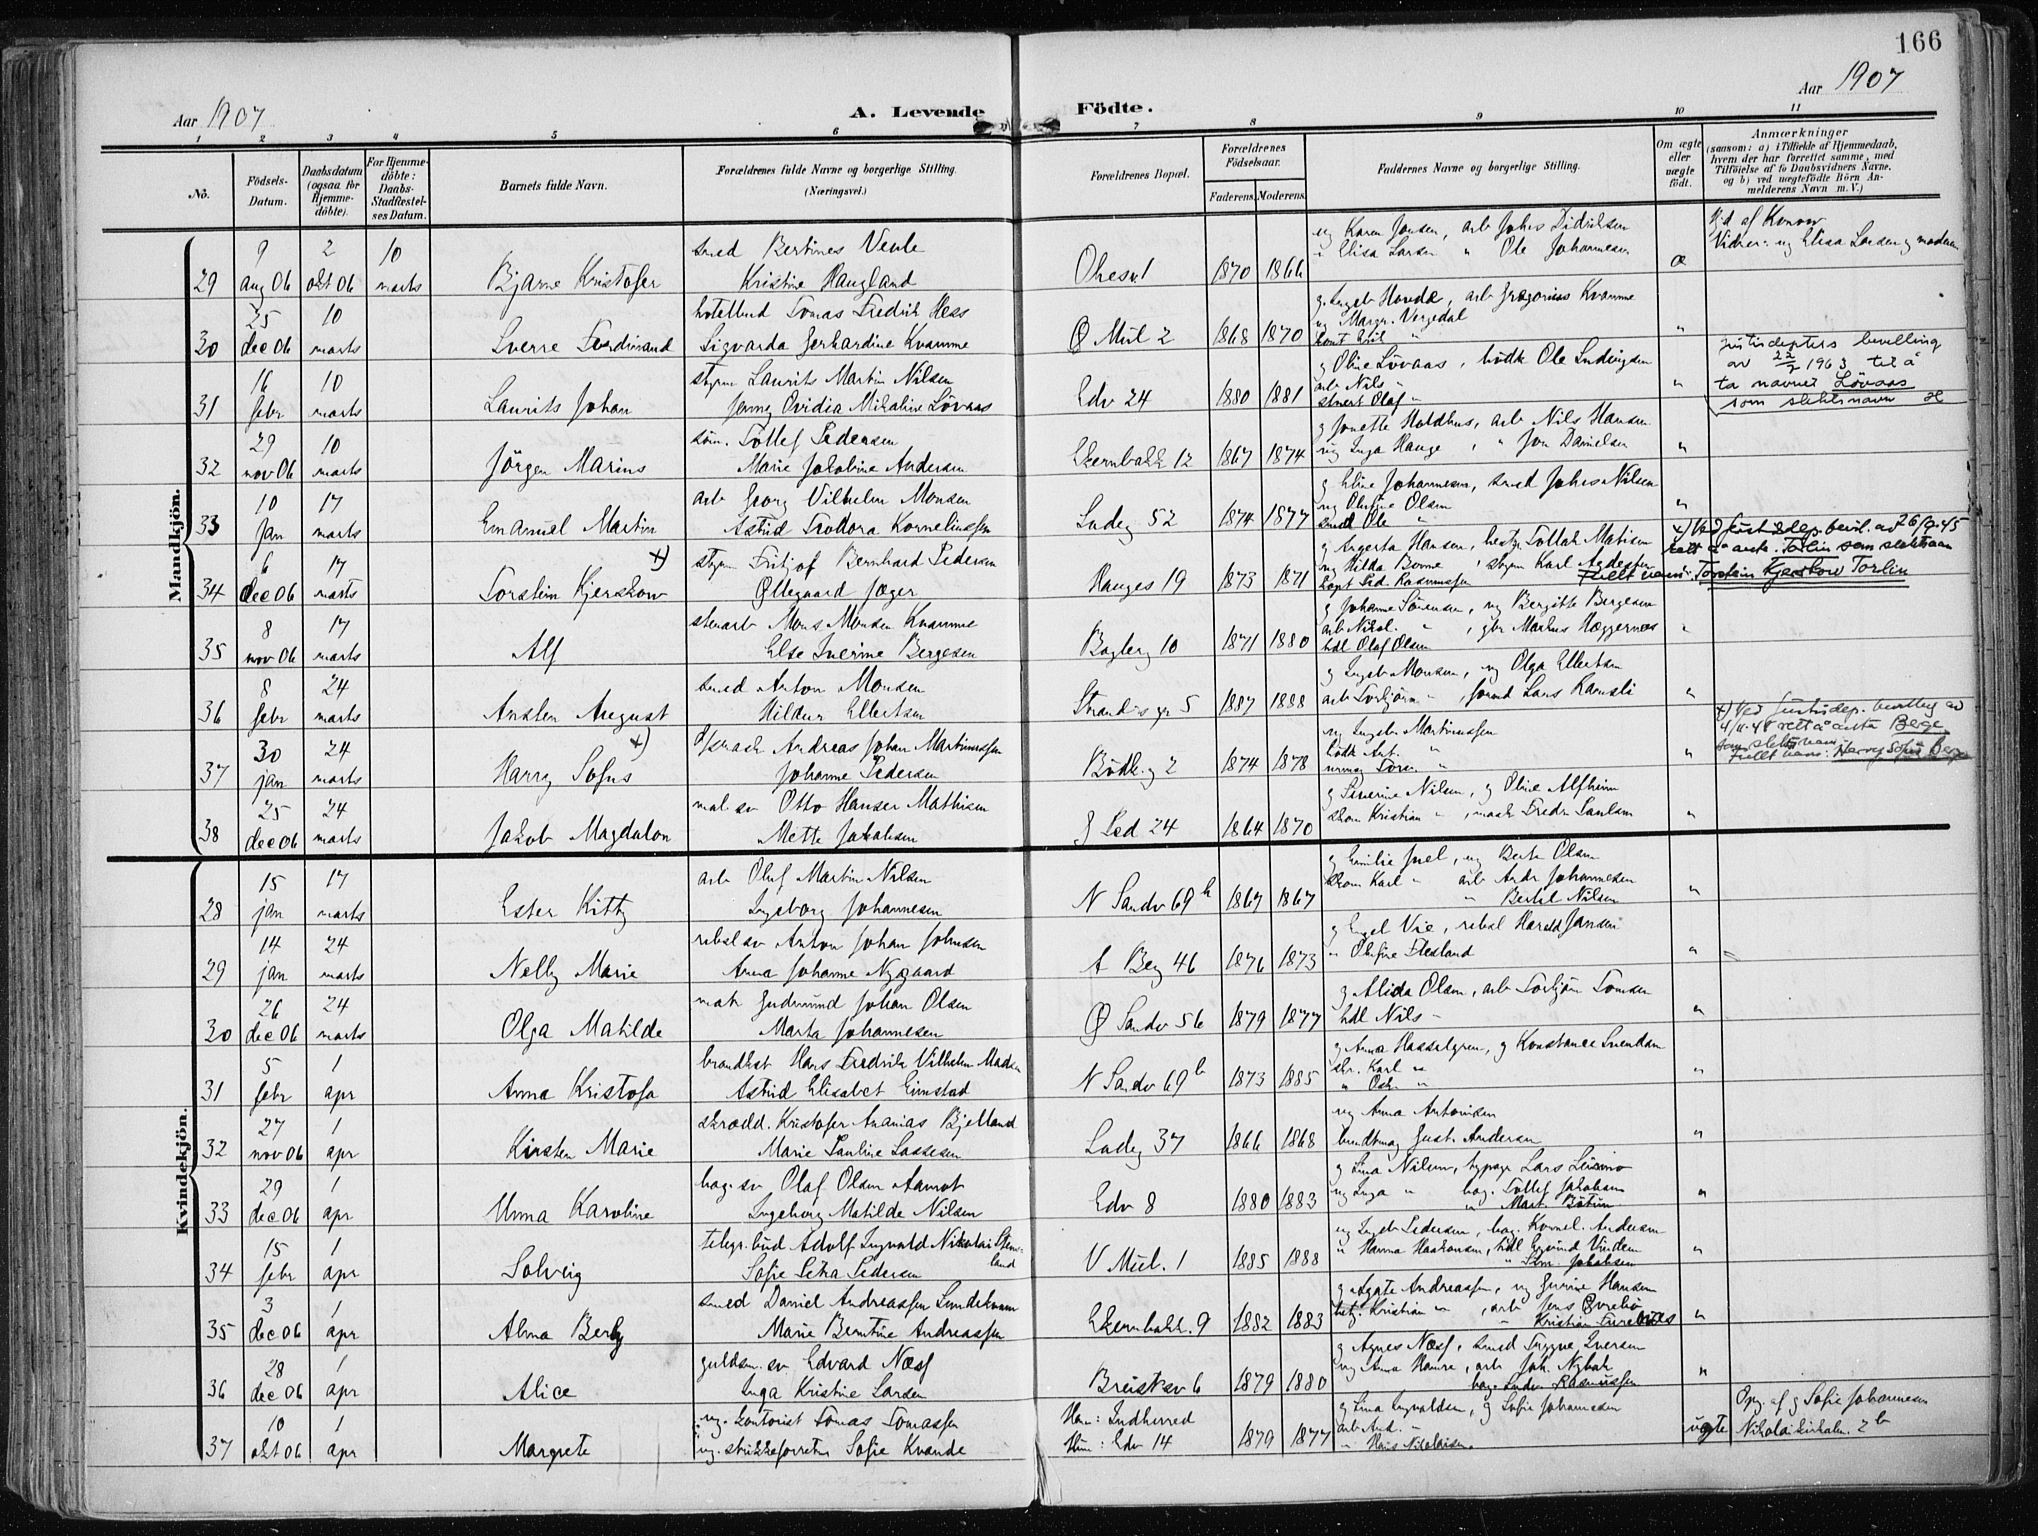 166
Aar 1907
A. Levende Födte.
Aar 1907
1 2 3 4 5 6 7 8 9 10 11
No.
Födsels-Datum.
Daabsdatum (ogsaa for Hjemme-döbte).
For Hjemme-döbte: Daabs-Stadfæstel-ses Datum.
Barnets fulde Navn.
Forældrenes fulde Navne og borgerlige Stilling. (Næringsvei.)
Forældrenes Bopæl.
Forældrenes Födselsaar.
Faderens. Moderens.
Faddernes Navne og borgerlige Stilling.
Om ægte eller uægte födt.
Anmærkninger
(saasom: a) i Tilfælde af Hjemmedaab, hvem der har forrettet samme, med Tilföielse af to Daabsvidners Navne, og b) ved uægtefödte Börn An-melderens Navn m. V.)
Mandkjön.
29 9 aug 06 2 okt 06 10 marts Bjarne Kristofer smed Bertines Vevle
Kristine Haugland 1870 1866 ug Karen Jonsen, arb Johs Didriksen
" Elisa Larsen " Ole Johannesen æ Hjd af Konow
Vidner: ug Elisa Larsen og moderen
30 25 dec 06 10 marts Sverre Ferdinand hotelbud Tomas Fredrik Hess
Sigvarda Gerhardine Kvamme Ø Mul 2 1868 1870 arb Gregorius Kvamme
ug Margr. Vergedal "
31 16 febr 10 marts Laurits Johan styrm Laurits Martin Nilsen
Jenny Ovidia Mikaline Lövaas Edv 24 1880 1881 g Oline Lövaas, bödk Ole Ludvigsen
arb Nils "
Olaf " " Justisdepters bevilling
av 22/2 1963 til å
ta navnet Lövaas
som slektsnavn
32 29 nov 06 10 marts Jörgen Marius Tollef Pedersen
Marie Jakobine Andersen 12 1867 1874 g Jonette Holdhus, arb Nils Hansen
ug Inga Hauge, " Jon Danielsen "
33 10 jan 17 marts Emanuel Martin arb Georg Vilhelm Monsen
Astrid Teodora Korneliussen Ladeg 52 1874 1877 g Eline Johannesen, smed Johs Nilsen
ug Olufine Olsen
smed Ole " "
34 6 dec 06 17 marts Torstein Kjerskow x) styrm Fritjof Bernhard Pedersen
Øllegaard Jæger Hauges 19 1873 1871 g Hansen, Tollak Matisen
ug Hilda Borne, styrm Karl
kapt Ped Rasmussen x) Ved Justisdep. bevil. av 26/9-45
rett å anta Torlin som slektsnavn
Fullt navn: Torstein Kjerskow Torlin
35 8 nov 06 17 marts Alf stenarb Mons Monsen Kvamme
Else Iverine Bergesen Bagleg 10 1871 1880 g Johanne Sörensen, ug Bergitte Bergesen
arb Nikol. " , gbr Markus Hæggernæs
hdl Olaf Olsen "
36 8 febr 24 marts August smed Anton Monsen
Hildur Ellertsen Strandis gr 5 1887 1888 g Ingeb Monsen, ug Olga Ellertsen
arb Torbjörn " , Lars Ramsli "
37 30 jan 24 marts Harry Sofus x) Andreas Johan Martinussen
Johanne Pedersen Bödk.g 2 1874 1878 ug Ingeb Martinussen
bödk Ant. "
" x) Ved Justisdep. bevilling av
4/11-48 rett å anta Berge
som slektsnavn
Fullt navn: Harry Sofus Berge
38 25 dec 06 24 marts Jakob Magdalon mal sv Otto Hanser Mathisen
Mette Jakobsen 24 1864 1870 g Severine Nilsen, g Oline Alfheim
skom Kristian " , Fredr Paulsen "
Kvindekjön.
28 15 jan 17 marts Ester Kitty arb Oluf Martin Nilsen
Ingeborg Johannesen N Sandv 69 b 1867 1867 g Emilie Juel, ug Berta Olsen
skom Karl " arb Andr Johannesen
" Bertel Nilsen "
29 14 jan 24 marts Nelly Marie rebsl sv Anton Johan Johnsen
Anna Johanne Nygaard A Beg 46 1876 1873 g Engel Vie, rebsl Harald Jansen
" Olufine Flesland "
30 26 dec 06 24 marts Olga Matilde Gudmund Johan Olsen
Marta Johannesen Ø Sandv 56 1879 1877 g Alida Olsen, arb Torbjörn Tomsen
hdl Nils " "
31 5 febr 1 apr Anna Kristofa Hans Fredrik Vilhelm Madsen
Astrid Elisabet Eimstad N Sandv 69 b 1873 1885 g Anna Hasselgren, g Konstance Svendsen
skr. Karl "
" Osk. " "
32 27 nov 06 1 apr Kirsten Marie skrædd. Kristofer Ananias Bjelland
Marie Pauline Lassesen Ladeg 37 1866 1868 ug Anna Antonisen
Gust. Andersen "
33 29 dec 06 1 apr Unna Karoline bag. sv Olaf Olsen Aamot
Ingeborg Matilde Nilsen Edv 8 1880 1883 g Lina Nilsen, Lars
ug Inga " bag. Tollef Jakobsen
" Mart. "
34 15 febr 1 apr Solveig telegr. bud Adolf Ingvald Nikolai Stens-land
Sofie Petra Pedersen V Mul. 1 1885 1888 ug Ingeb Pedersen, bag. Kornel. Andersen
" Hanna Haakonsen, hdl Eyvind
" Jakobsen "
35 3 dec 06 1 apr Alma Berly smed Daniel Andreassen Lundekvam
Marie Berntine Andreassen 9 1882 1883 g Agate Andreassen, ug Hansen
Kristian " , arb Jens
" Kristian "
36 28 dec 06 1 apr Alice guldsm. sv Edvard Næsf
Inga Kristine Larsen Breistsv 6 1879 1880 g Agnes Næsf, smed Trygve Iversen
ug Anna Hamre, arb Joh. Nybak
bag. Rasmussen "
37 10 okt 06 1 apr Margrete ug. kontorist Tomas Tomassen
ug. strikkeforretn Sofie Kvande Ham: Indherred
Hun: Edv 14 1879 1877 g Lina Ingvaldsen, g Sofie Johannesen
arb And. "
" Hans Nikolaisen. uægte Opg. af g Sofie Johannesen
Nikolaikirkalm. 2 b